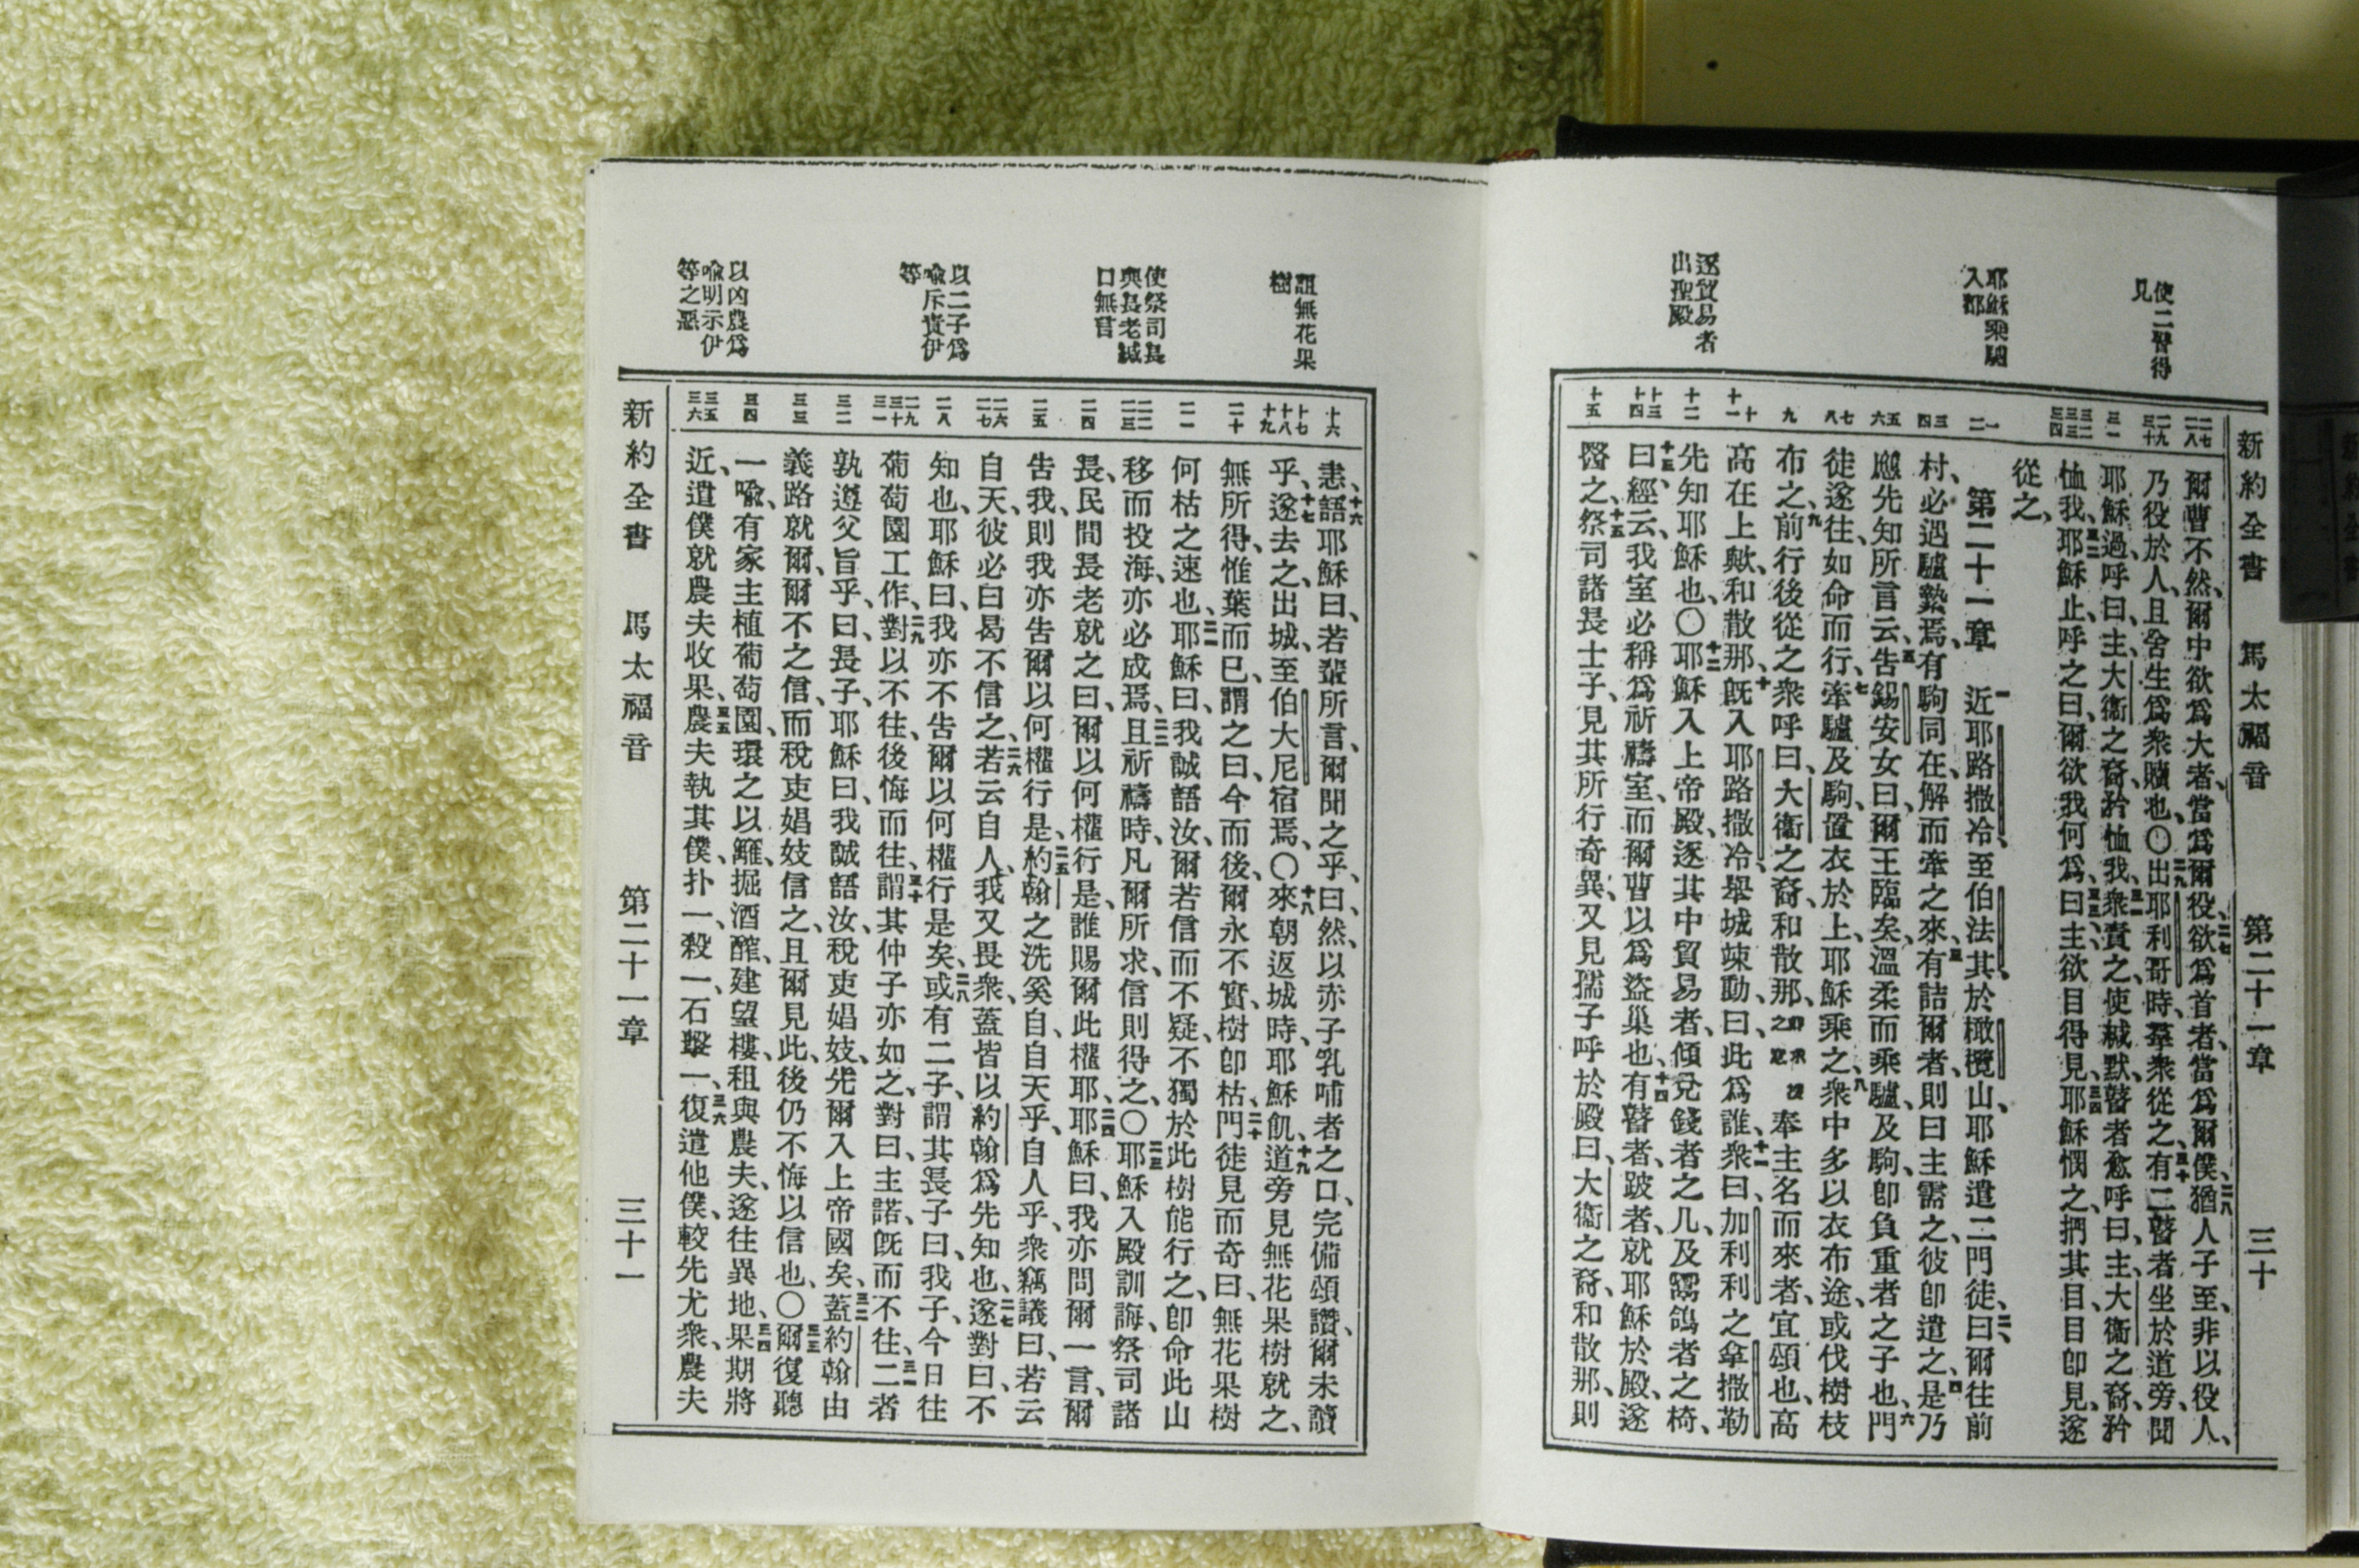 新約全書 馬太福音 第二十一章 三十
使二瞽得
見
耶穌乘驢
入都
逐貿易者
出聖殿
二七 二八
二九 三十
三一
三二 三三 三四
一 二
三 四
五 六
七 八
九
十 十一
十二
十三 十四
十五
爾曹不然、爾中欲爲大者、當爲爾役、二七欲爲首者、當爲爾僕、二八猶人子至、非以役人、
乃役於人、且舍生爲衆贖也、〇二九出耶利哥時、羣衆從之、三十有二瞽者坐於道旁、聞
耶穌過、呼曰、主、大衛之裔、矜恤我、三一衆責之、使緘默、瞽者愈呼曰、主、大衛之裔、矜
恤我、三二耶穌止、呼之曰、爾欲我何爲、三三曰、主、欲目得見、三四耶穌憫之、捫其目、目卽見、遂
從之、
第二十一章 一近耶路撒冷、至伯法其、於橄欖山、耶穌遣二門徒、二曰、爾往前
村、必遇驢縶焉、有駒同在、解而牽之來、三有詰爾者、則曰主需之、彼卽遣之、四是乃
應先知所言云、五告錫安女曰、爾王臨矣、溫柔而乘驢、及駒、卽負重者之子也、六門
徒遂往、如命而行、七牽驢及駒、置衣於上、耶穌乘之、八衆中多以衣布途、或伐樹枝
布之、九前行後從之衆呼曰、大衛之裔、和散那、奉主名而來者、宜頌也、高
高在上歟、和散那、十旣入耶路撒冷、舉城竦動、曰、此爲誰、十一衆曰、加利利之拿撒勒
先知耶穌也、〇十二耶穌入上帝殿、逐其中貿易者、傾兌錢者之几、及鬻鴿者之椅、
十三曰、經云、我室必稱爲祈禱室、而爾曹以爲盜巢也、十四有瞽者、跛者、就耶穌於殿、遂
醫之、十五祭司諸長士子、見其所行奇異、又見孺子呼於殿曰、大衛之裔、和散那、則
詛無花果
樹
使祭司長
與長老緘
口無言
以二子爲
喩斥責伊
等
以凶農爲
喩明示伊
等之惡
十六
十七 十八 十九
二十
二一
二二 二三
二四
二五
二六 二七
二八
二九 三十 三一
三二
三三
三四
三五 三六
恚、十六語耶穌曰、若輩所言、爾聞之乎、曰、然、以赤子乳哺者之口、完備頌讚、爾未讀
乎、十七遂去之、出城、至伯大尼宿焉、〇十八來朝返城時、耶穌飢、十九道旁見無花果樹就之、
無所得、惟葉而已、謂之曰、今而後、爾永不實、樹卽枯、二十門徒見而奇曰、無花果樹
何枯之速也、二一耶穌曰、我誠語汝、爾若信而不疑、不獨於此樹能行之、卽命此山
移而投海、亦必成焉、二二且祈禱時、凡爾所求、信則得之、〇二三耶穌入殿訓誨、祭司諸
長、民間長老就之曰、爾以何權行是、誰賜爾此權耶、二四耶穌曰、我亦問爾一言、爾
告我、則我亦告爾以何權行是、二五約翰之洗奚自、自天乎、自人乎、衆竊議曰、若云
自天、彼必曰曷不信之、二六若云自人、我又畏衆、蓋皆以約翰爲先知也、二七遂對曰、不
知也、耶穌曰、我亦不告爾以何權行是矣、二八或有二子、謂其長子曰、我子、今日往
葡萄園工作、二九對以不往、後悔而往、三十謂其仲子亦如之、對曰、主諾、旣而不往、三一二者
孰遵父旨乎、曰、長子、耶穌曰、我誠語汝、稅吏娼妓、先爾入上帝國矣、三二蓋約翰由
義路就爾、爾不之信、而稅吏娼妓信之、且爾見此、後仍不悔以信也、〇三三爾復聽
一喩、有家主植葡萄園、環之以籬、掘酒醡、建望樓、租與農夫、遂往異地、三四果期將
近、遣僕就農夫收果、三五農夫執其僕、扑一、殺一、石擊一、三六復遣他僕、較先尤衆、農夫
新約全書 馬太福音 第二十一章 三十一